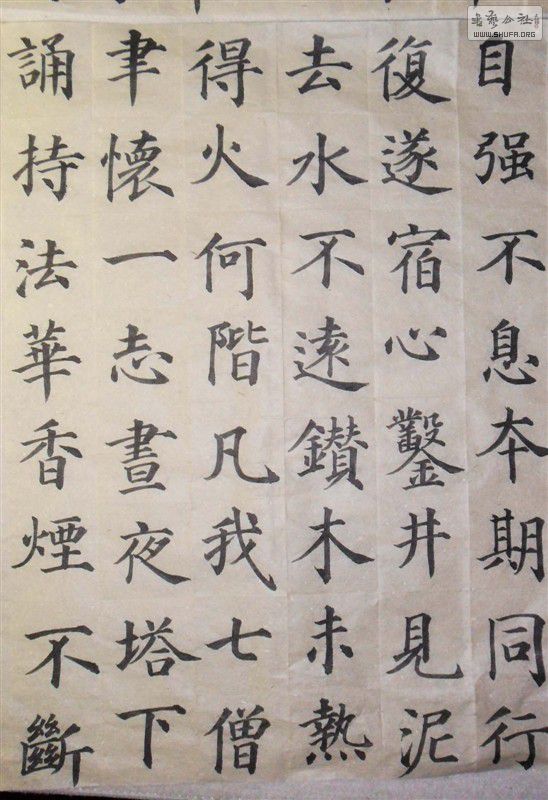 自强不息本期同行
復遂宿心鑿井見泥
去水不遠鑽木未熱
得火何階凡我七僧
聿懷一志晝夜塔下
誦持法華香煙不斷
書藝公社
WWW.SHUFA.ORG